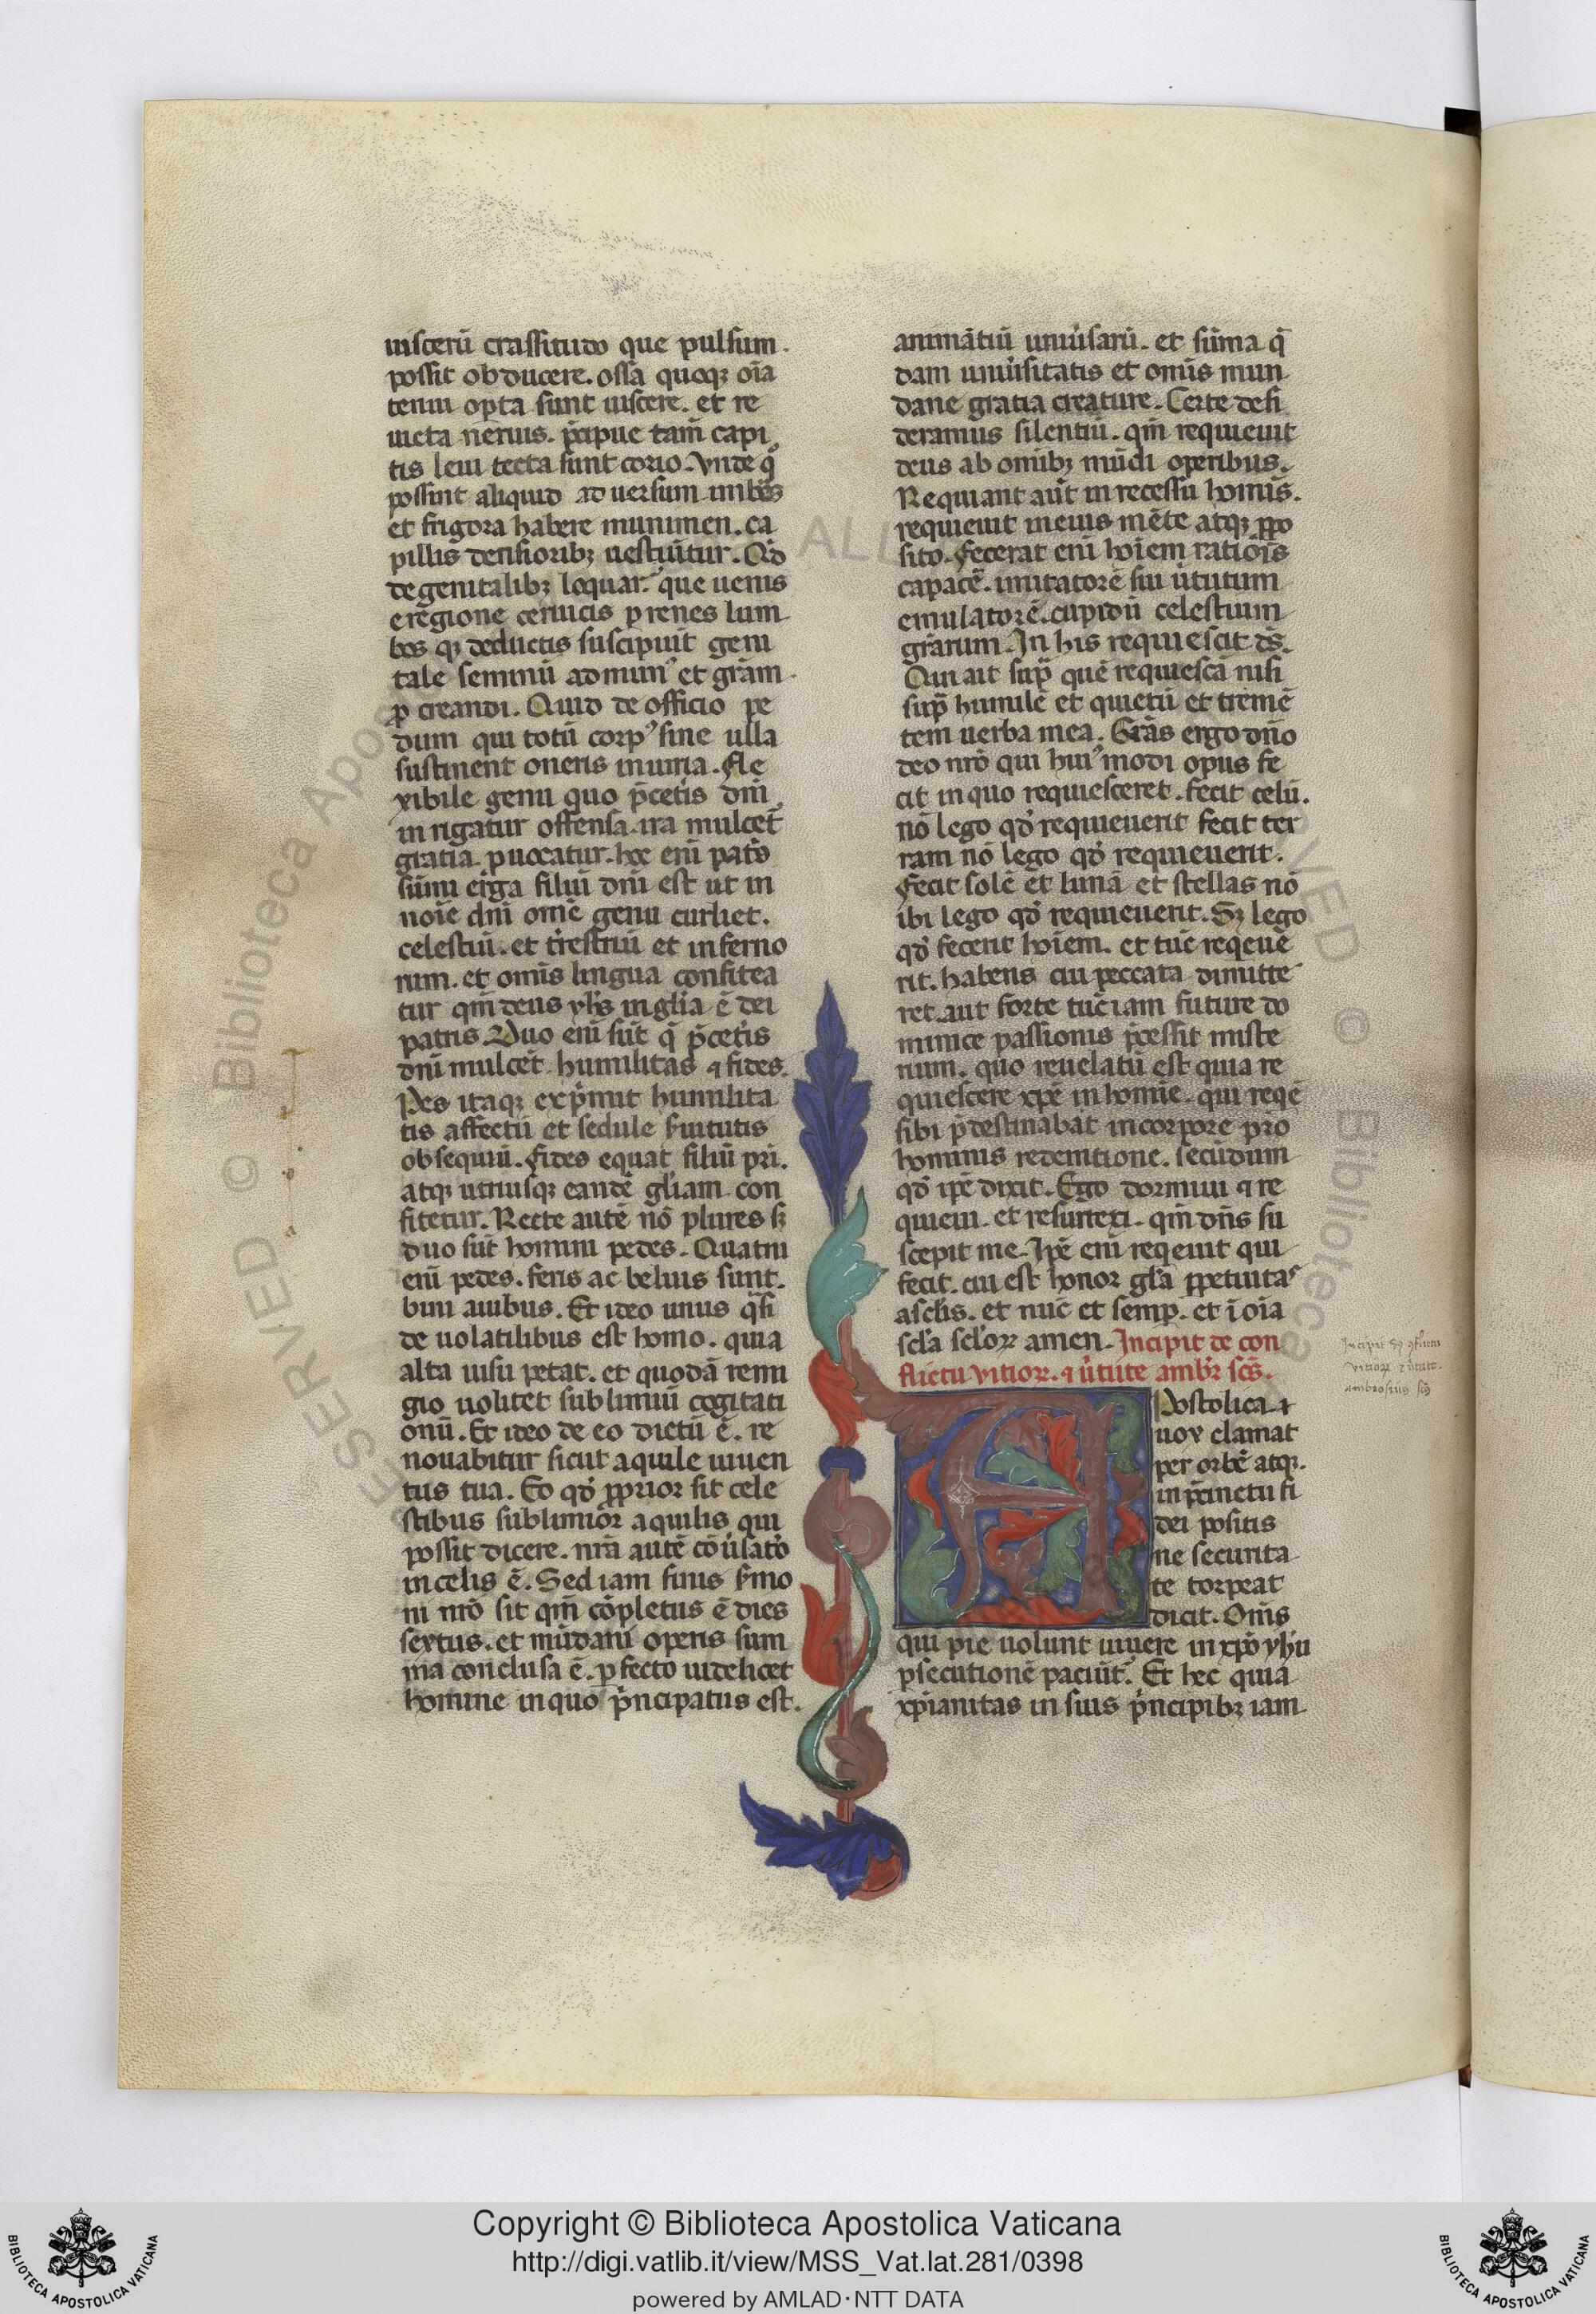 uisceru᷑ crassitudo que pulsum.
possit obducere. ossa quoqꝫ oi᷑a
tenui op᷑ta sunt uiscere. et re
uicta neruis. p᷑cipue tam᷑ capi
tis leui tecta sunt corio. Vnde q᷑
possint aliquid aduersum imb᷑es
et frigora habere munimen. ca
pillis densioribꝫ uestiu᷑tur. Qd᷑
de genitalibꝫ loquar. que uenis
e regione ceruicis ꝑ renes lum
bosqꝫ deductis suscipiu᷑t geni
tale seminu᷑ ad munꝰ et gr᷑am
ꝓcreandi. Quid de officio pe
dum qui totu᷑ corpꝰ sine ulla
sustinent oneris iniuria. Fle
xibile genu quo p᷑ceteris dn᷑i
mitigatur offensa. ira mulcet᷑
gratia ꝓuocatur. hoc eni᷑ patris
su᷑mi erga filiu᷑ dn᷑i est ut in
noi᷑e dn᷑i ome᷑ genu curuet.
celestiu᷑. et t᷑restriu᷑ et inferno
rum. et omis᷑ lingua confitea
tur qm᷑ deus yh᷑s in gl᷑ia e᷑ dei
patris. Duo eni᷑ su᷑t q᷑ p᷑ceteris
dn᷑m mulcet᷑ humilitas ⁊ fides.
Pes itaqꝫ exp᷑mit humilita
tis affectu᷑ et sedule s᷑uitutis
obsequiu᷑. Fides equat filiu᷑ pr᷑i.
atqꝫ utriusqꝫ eande᷑ gl᷑iam con
fitetur. Recte aute᷑ no᷑ plures sꝫ
duo su᷑t hominu᷑ pedes. Quatrni
eni᷑ pedes. feris ac beluis sunt.
bini auibus. Et ideo unus q᷑si
de uolatilibus est homo. quia
alta uisu petat. et quoda᷑ remi
gio uolitet sublimiu᷑ cogitati
onu᷑. Et ideo de eo dictu᷑ e᷑. re
nouabitur sicut aquile iuuen
tus tua. Eo qd᷑ ꝓprior sit cele
stibus sublimior aquilis qui
possit dicere. nr᷑a aute᷑ co᷑u᷑satio
in celis e᷑. Sed iam finis s᷑mo
ni nr᷑o sit qm᷑ co᷑pletus e᷑ dies
sextus. et mu᷑dani operis sum
ma conclusa e᷑. ꝑfecto uidelicet
homine in quo p᷑ncipatus est.
animantiu᷑ uniu᷑saru᷑. et su᷑ma q᷑
dam uniu᷑sitatis et omis᷑ mun
dane gratia creature. Certe defi
deramus silentiu᷑. qm᷑ requieuit
deus ab omibꝫ mu᷑di operibus.
Requieuit aut᷑ in recessu homis᷑.
requieuit in eius me᷑te atqꝫ ꝓpo
sito. Fecerat eni᷑ hoi᷑em ratiois᷑
capace᷑. imitatore᷑ sui u᷑tutum
emulatore᷑. cupidu᷑ celestium
gr᷑arum. In his requiescit ds᷑.
Qui ait sup᷑ que᷑ requiesca᷑ nisi
sup᷑ humile᷑ et quietu᷑ et treme᷑
tem uerba mea. Gr᷑as ergo dn᷑o
deo nr᷑o qui huiꝰmodi opus fe
cit in quo requiesceret. Fecit celu᷑.
no᷑ lego qd᷑ requieuerit fecit ter
ram no᷑ lego qd᷑ requieuerit.
Fecit sole᷑ et luna᷑ et stellas no᷑
ibi lego qd᷑ requieuerit. Sꝫ lego
qd᷑ fecerit hoi᷑em. et tuc᷑ reqeue
rit. habens cui peccata dimitte
ret. aut forte tuc᷑ iam future do
minice passionis p᷑cessit miste
rium. quo reuelatu᷑ est quia re
quiescere xp᷑c in homie᷑. qui reqe᷑
sibi p᷑destinabat in corpore pro
hominis redemtione. secu᷑dum
qd᷑ ip᷑e dixit. Ego dormiui ⁊ re
quieui. et resurrexi. qm᷑ dn᷑s su
scepit me. Ip᷑e eni᷑ reqeuit qui
fecit. cui est honor gl᷑a ꝑpetuitas
a scl᷑is. et nuc᷑ et semꝑ. et i᷑ oi᷑a
scl᷑a scl᷑oꝝ amen. Incipit de con
flictu vitioꝝ. ⁊ u᷑tute ambr᷑ sc᷑s.
Apostolica
uox clamat
per orbe᷑ atqꝫ.
in p᷑cinctu fi
dei positis
ne securita
te torpeat
dicit. Om᷑s
qui pie uolunt uiuere in xp᷑o yh᷑u
ꝑsecutione᷑ paciu᷑t᷑. Et hec quia
xp᷑ianitas in suis p᷑ncipibꝫ iam
Copyright © Biblioteca Apostolica Vaticana
http://digi.vatlib.it/view/MSS_Vat.lat.281/0398
powered by AMLAD·NTT DATA
BIBLIOTECA APOSTOLICA VATICANA
BIBLIOTECA APOSTOLICA VATICANA